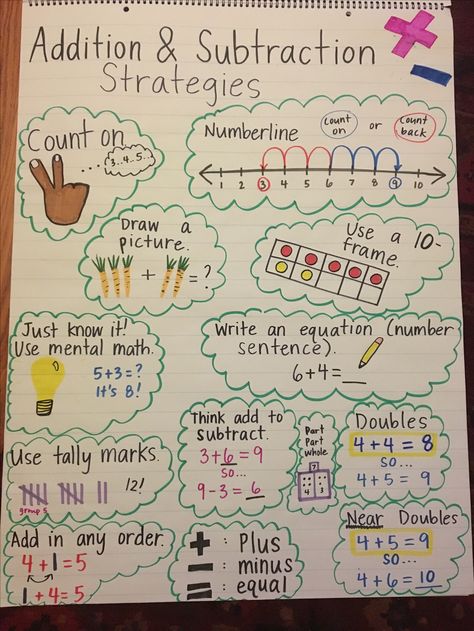 Addition & Subtraction
Strategies
Count on
3..4..5...
Numberline
count on
or
count back
1 2 3 4 5 6 7 8 9 10
Draw a
picture.
+ = ?
Use a 10-
frame.
Just know it!
Use mental math.
5+3=?
It's 8!
Write an equation (number
sentence).
6+4=__
Use tally marks.
12!
group 5
Think add to
subtract.
3+6=9
so...
9-3=6
Part
Part
whole
7
Doubles
4+4=8
so...
4+5=9
Add in any order.
4+1=5
1+4=5
+ : Plus
- : minus
= : equal
Near Doubles
4+5=9
so...
4+6=10